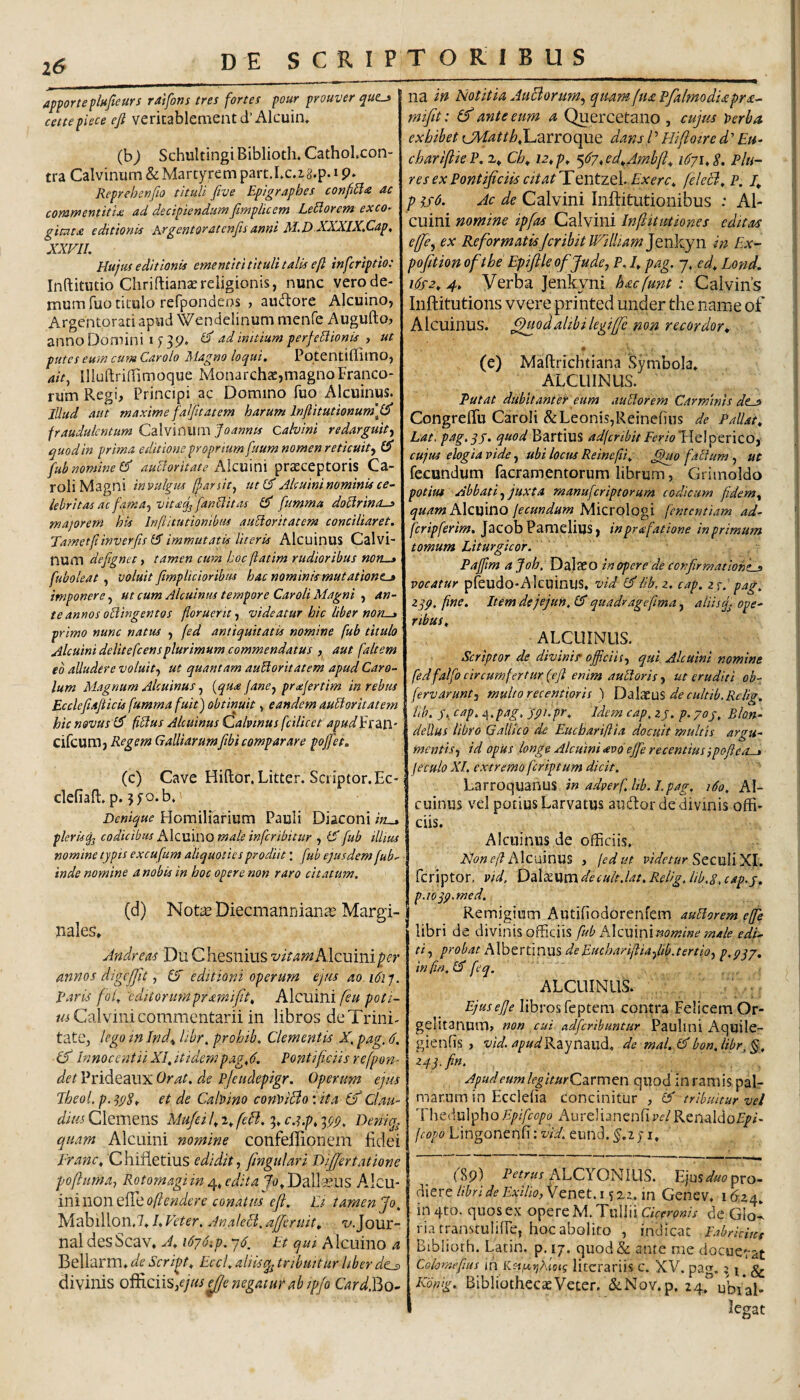 26
DE SCRIPTORIBUS
apporte plusieurs raisons tres fortes pour prouver que
cette piece est veritablement d' Alcuin.
(b) Schultingi Biblioth. Cathol. con-
tra Calvinum & Martyrem part. I. c. 28. p. 19.
Reprehensio tituli sive Epigraphes conficta ac
commentitia ad decipiendum simplicem Lectorem exco-
gitata editionis Argentoratensis anni M.D XXXIX. Cap.
XXVII.
Hujus editionis ementiti tituli talis est inscriptio:
Institutio Christianæ religionis, nunc vero de-
mum suo titulo respondens, auctore Alcuino,
Argentorati apud Wendelinum mense Augusto,
anno Domini 1539. & ad initium perfectionis, ut
putes eum cum Carolo Magno loqui. Potentissimo,
ait, Illustrissimoque Monarchæ, magno Franco-
rum Regi, Principi ac Domino suo Alcuinus.
Illud aut maxime falsitatem harum Institutionum &
fraudulentum Calvinum Joannis Calvini redarguit,
quod in prima editione proprium suum nomen reticuit, &
sub nomine & auctoritate Alcuini præceptoris Ca-
roli Magni in vulgus sparsit, ut & Alcuini nominis ce-
lebritas ac fama, vitæq; sanctitas & summa doctrina
majorem his Institutionibus auctoritatem conciliaret.
Tametsi inversis & immutatis literis Alcuinus Calvi-
num designet, tamen cum hoc statim rudioribus non
suboleat, voluit simplicioribus hac nominis mutatione
imponere, ut cum Alcuinus tempore Caroli Magni, an-
te annos octingentos floruerit, videatur hic liber non
primo nunc natus, sed antiquitatis nomine sub titulo
Alcuini delitescens plurimum commendatus, aut saltem
eò alludere voluit, ut quantam auctoritatem apud Caro-
lum Magnum Alcuinus, (qua sane, præsertim in rebus
Ecclesiasticis summa fuit) obtinuit, eandem auctoritatem
hic novus & fictus Alcuinus Calvinus scilicet apud Fran-
ciscum, Regem Galliarum sibi comparare posset.
(c) Cave Histor. Litter. Scriptor. Ec-
clesiast. p. 350. b.
Denique Homiliarium Pauli Diaconi in
plerisq; codicibus Alcuino male inscribitur, & sub illius
nomine typis excusum aliquoties prodiit: sub ejusdem sub-
inde nomine a nobis in hoc opere non raro citatum.
(d) Notæ Diecmannianæ Margi-
nales.
Andreas Du Chesnius vitam Alcuini per
annos digessit, & editioni operum ejus ao 1617.
Paris fol. editorum præmisit. Alcuini seu poti-
us Calvini commentarii in libros de Trini-
tate, lego in Ind. libr. prohib. Clementis X. pag. 6.
& Innocentii XI. itidem pag. 6. Pontificiis respon-
det Prideaux Orat. de Pseudepigr. Operum ejus
Theol. p. 398. et de Calvino convicto: ita & Clau-
dius Clemens Musei l. 2. sect. 3. c.3. p. 399. Deniq;
quam Alcuini nomine confessionem fidei
Franc. Chifletius edidit, singulari Dissertatione
postuma, Rotomagi in 4. edita Jo. Dallæus Alcu-
ini non esse ostendere conatus est. Ei tamen Jo.
Mabillon. T. I. Veter. Analect. asseruit. v. Jour-
nal des Scav. A. 1676. p. 76. Et qui Alcuino a
Bellarm. de Script. Eccl. aliisq; tribuitur liber de
divinis officiis, ejus esse negatur ab ipso Card. Bo-
na in Notitia Auctorum, quam suæ Psalmodiæ præ-
misit: & ante eum a Quercetano, cujus verba
exhibet Matth. Larroque dans l' Histoire d' Eu-
charistie P. 2. Ch. 12. p. 567. ed. Ambst. 1671. 8. Plu-
res ex Pontificiis citat Tentzel. Exerc. select. P. I.
p 356. Ac de Calvini Institutionibus: Al-
cuini nomine ipsas Calvini Institutiones editas
esse, ex Reformatis scribit William Jenkyn in Ex-
position of the Epistle of Jude, P. I. pag. 7. ed. Lond.
1652. 4. Verba Jenkyni hæc sunt: Calvin's
Institutions vvere printed under the name of
Alcuinus. Quod alibi legisse non recordor.
(e) Mastrichtiana Symbola.
ALCUINUS.
Putat dubitanter eum auctorem Carminis de
Congressu Caroli & Leonis, Reinesius de Pallat.
Lat. pag. 35. quod Bartius adscribit Ferio Helperico,
cujus elogia vide, ubi locus Reinesii. Quo factum, ut
fecundum sacramentorum librum, Grimoldo
potius Abbati, juxta manuscriptorum codicum fidem,
quam Alcuino secundum Micrologi sententiam ad-
scripserim. Jacob Pamelius, in præfatione in primum
tomum Liturgicor.
Passim a Joh. Dalæo in opere de confirmatione
vocatur pseudo-Alcuinus. vid & lib. 2. cap. 25. pag.
239. fine. Item de jejun. & quadragesima, aliisq; ope-
ribus.
ALCUINUS.
Scriptor de divinis officiis, qui Alcuini nomine
sed falso circumfertur (est enim auctoris, ut eruditi ob-
servarunt, multo recentioris) Dalæus de cultib. Relig.
lib. 5. cap. 4. pag. 591. pr. Idem cap. 25. p. 705. Blon-
dellus libro Gallico de Eucharistia docuit multis argu-
mentis, id opus longe Alcuini ævo esse recentius; postea
seculo XI. extremo scriptum dicit.
Larroquanus in advers. lib. I. pag. 160. Al-
cuinus vel potius Larvatus auctor de divinis offi-
ciis.
Alcuinus de officiis.
Non est Alcuinus, sed ut videtur Seculi XI.
scriptor. vid. Dalæum de cult. lat. Relig. lib. 8. cap. 5.
p. 1039. med.
Remigium Autisiodorensem auctorem esse
libri de divinis officiis sub Alcuini nomine male edi-
ti, probat Albertinus de Eucharistia, lib. tertio, p. 937.
in fin. & seq.
ALCUINUS.
Ejus esse libros septem contra Felicem Or-
gelitanum, non cui adscribuntur Paulini Aquile-
giensis, vid. apud Raynaud. de mal. & bon. libr. §.
243. fin.
Apud eum legitur Carmen quod in ramis pal-
marum in Ecclesia concinitur, & tribuitur vel
Thedulpho Episcopo Aurelianensi vel Renaldo Epi-
scopo Lingonensi: vid. eund. §. 251.
(89) Petrus ALCYONIUS. Ejus duo pro-
diere libri de Exilio, Venet. 1522. in Genev. 1624.
in 4to. quos ex opere M. Tullii Ciceronis de Glo-
ria transtulisse, hoc abolito, indicat Fabricius
Biblioth. Latin. p. 17. quod & ante me docuerat
Colomesius in Κειμηλίοις literariis c. XV. pag. 31. &
König. Bibliothecæ Veter. & Nov. p. 24. ubi al-
legat